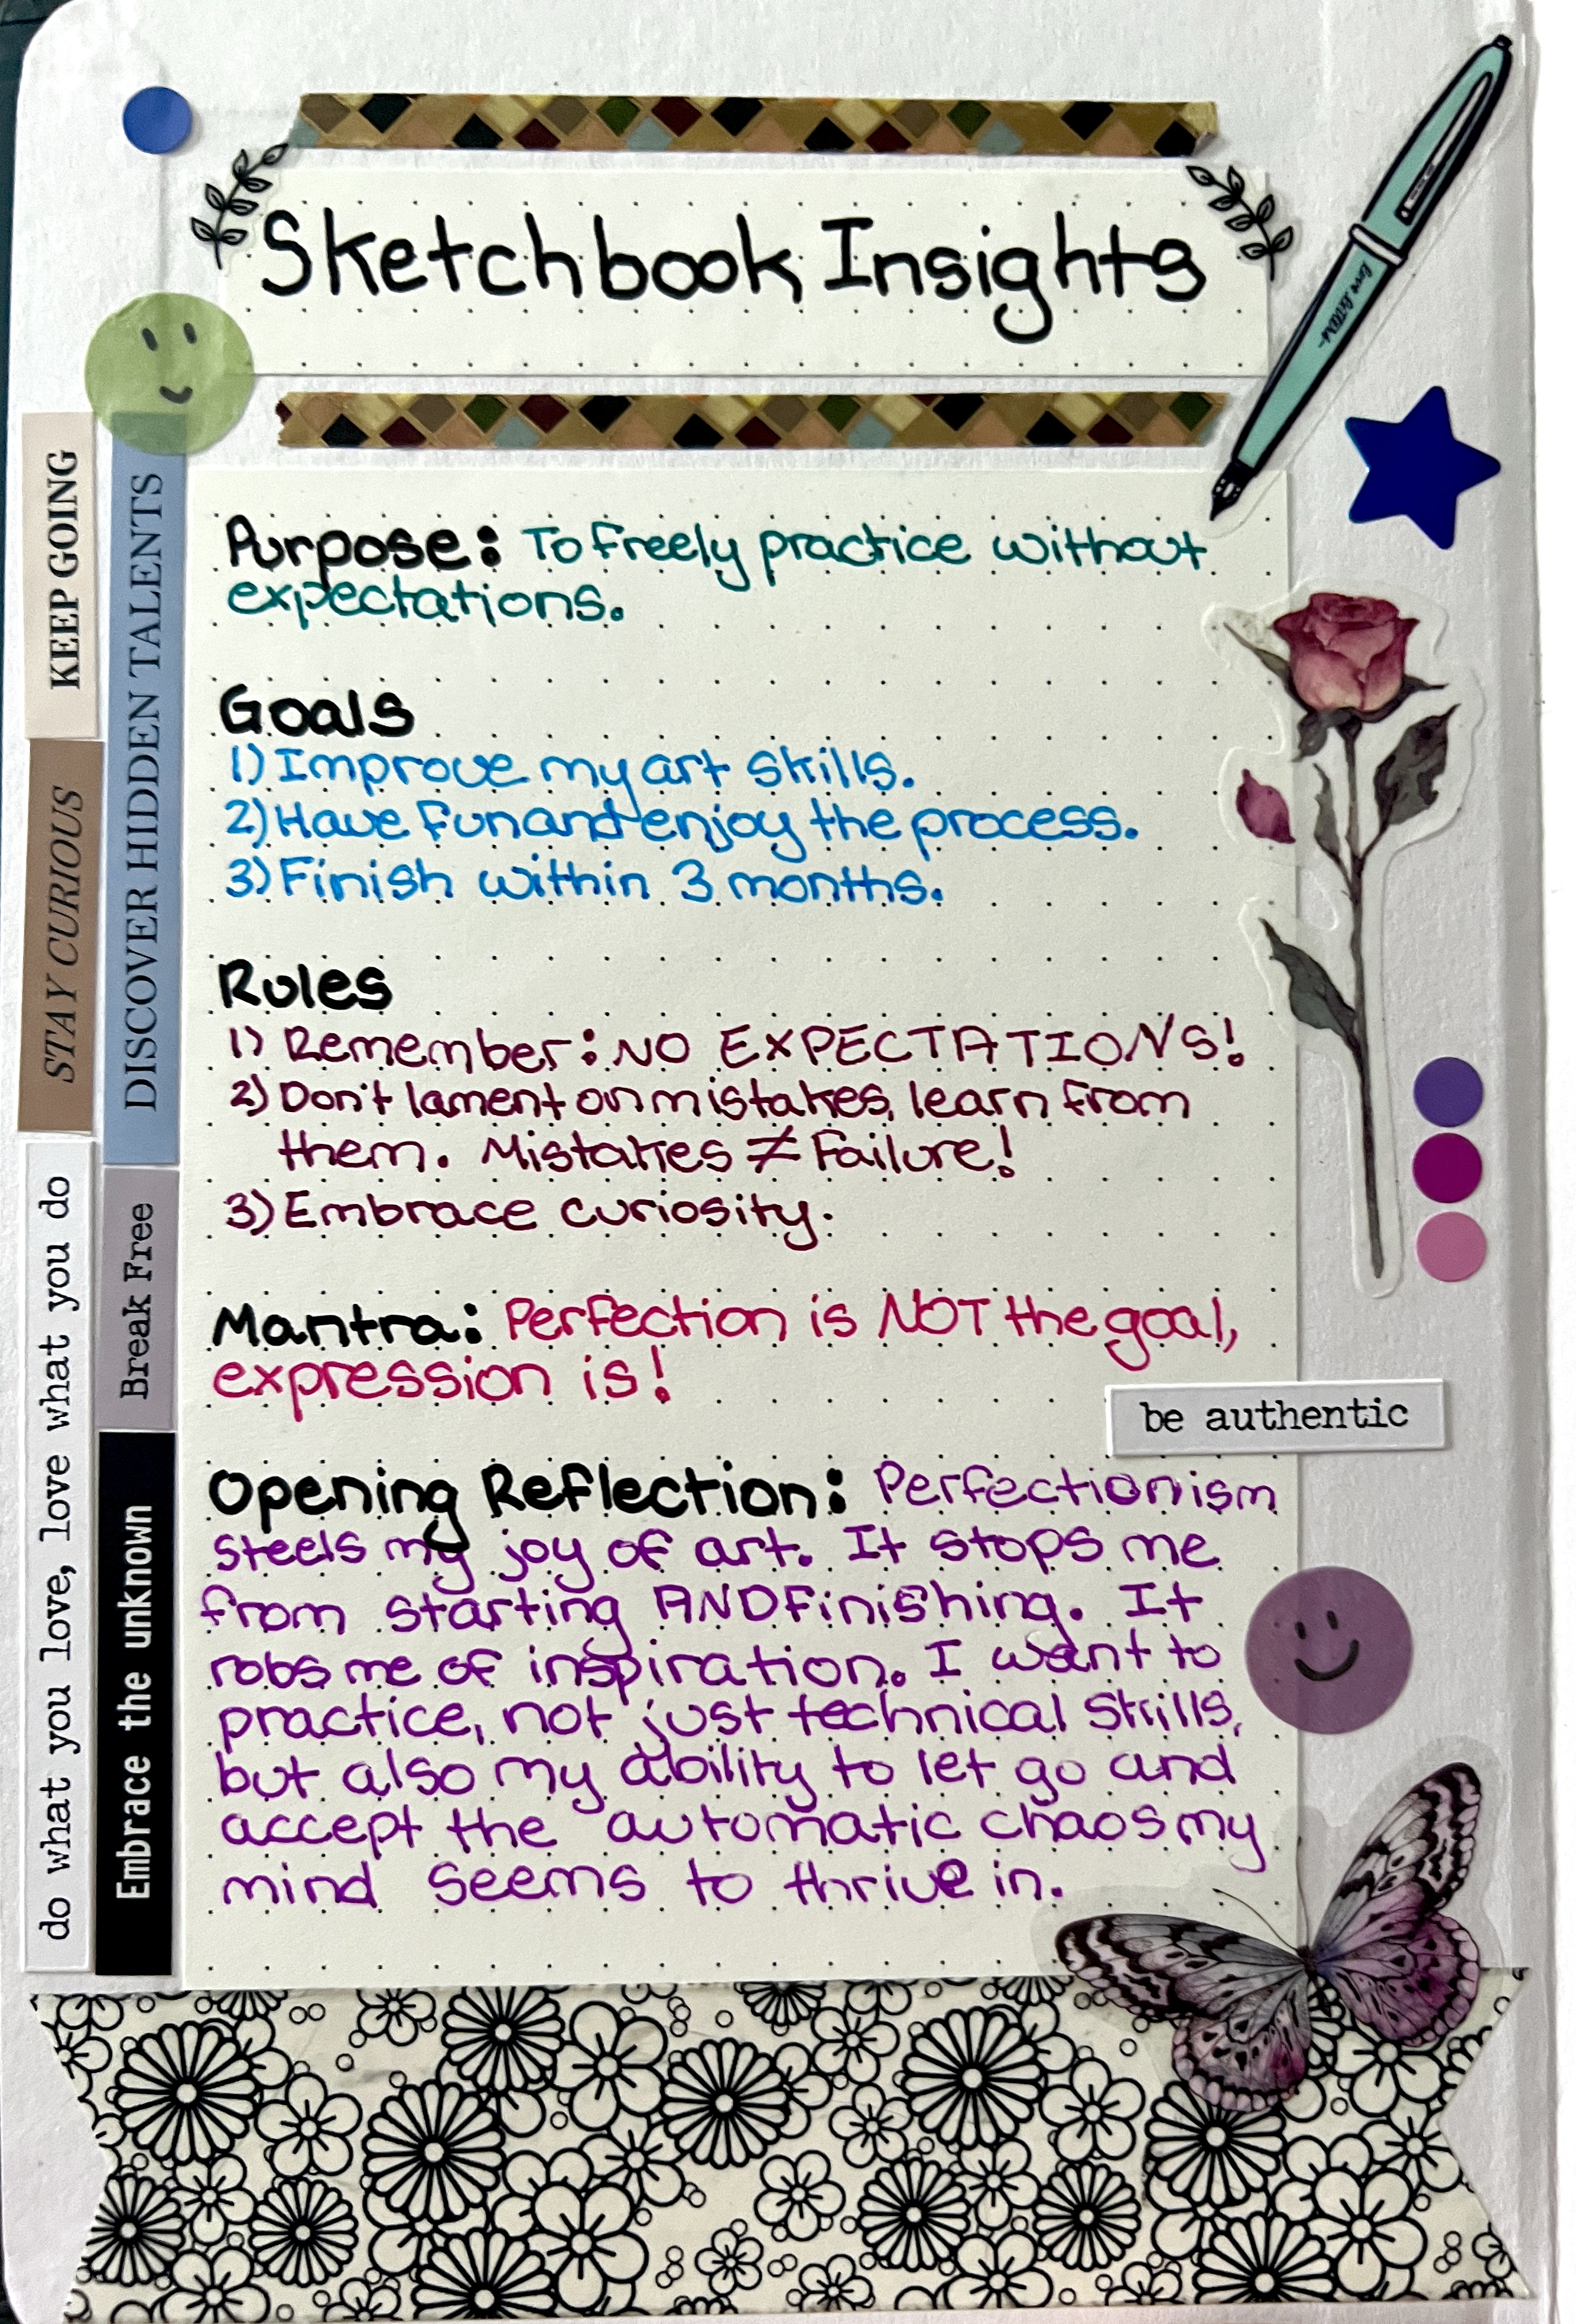 Sketchbook Insights
Purpose: To freely practice without
expectations.
Goals
1) Improve my art skills.
2) Have fun and enjoy the process.
3) Finish within 3 months.
Rules
1) Remember: NO EXPECTATIONS!
2) Don't lament on mistakes, learn from
them. Mistakes ≠ Failure!
3) Embrace curiosity.
Mantra: Perfection is NOT the goal,
expression is!
Opening Reflection: Perfectionism
steels my joy of art. It stops me
from starting AND finishing. It
robs me of inspiration. I want to
practice, not just technical skills,
but also my ability to let go and
accept the automatic chaos my
mind seems to thrive in.
KEEP GOING
STAY CURIOUS
do what you love, love what you do
DISCOVER HIDDEN TALENTS
Break Free
Embrace the unknown
be authentic